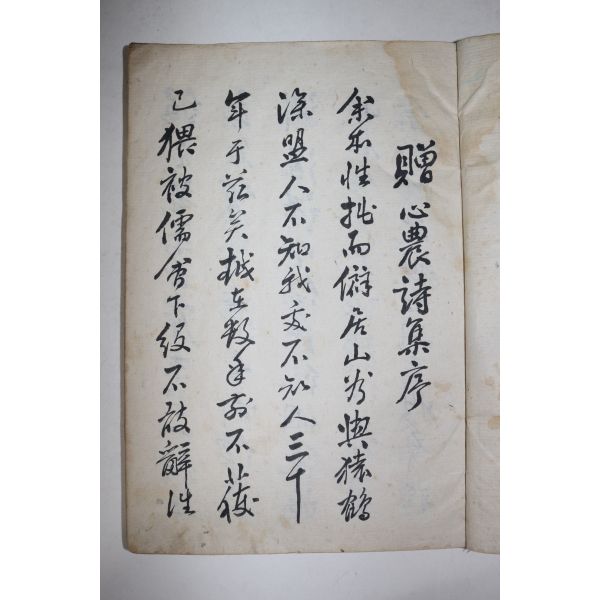 贈心農詩集序
余本性拙而僻居山爲與猿鶴
深盟人不知我我亦不知人三十
年于茲矣越在數年前不獲
已猥被儒會下級不敢辭往